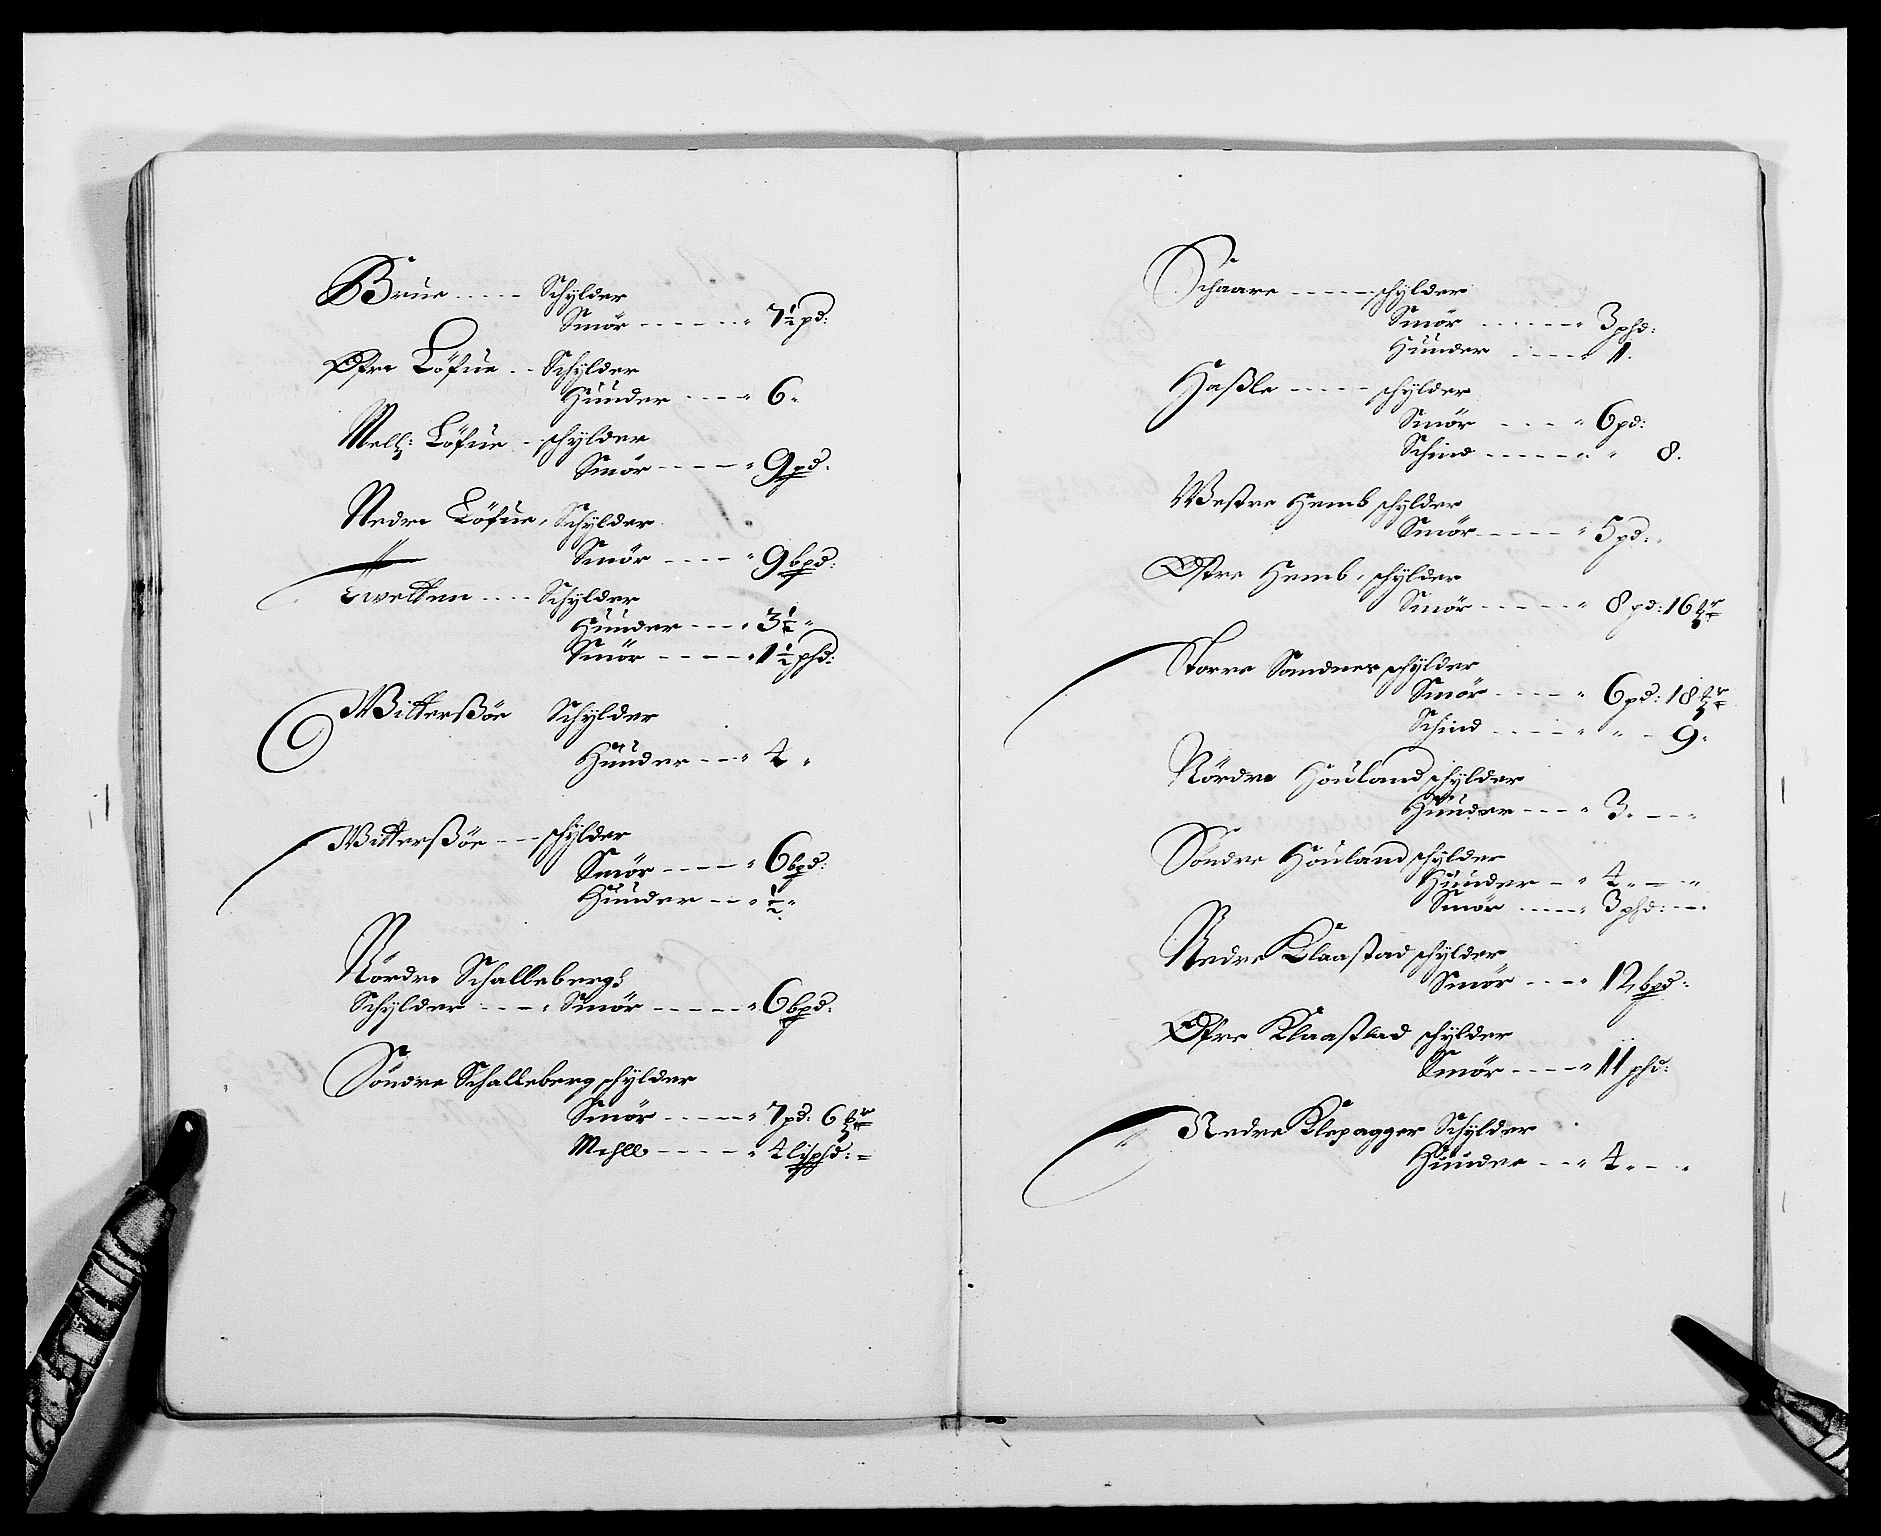 Brue ..... Schylder
Smör ------ 7½ pd:
Øfre Löfue .. Schylder
Hunder ---- 6
Mell: Löfue - schylder
Smör ---- 9 pd.
Nedre Löfue, Schylder
Smör ---- 9 bpd:
Twetten .... Schylder
Hunder --- 3½
Smör ---- 1½ phd:
Witterßöe Schylder
Hunder --- 4
Witterßöe --- schylder
Smör ---- 6 bpd:
Hunder -- ½
Nordre Schalleberg
Schylder ---- Smör ----- 6 bpd.
Söndre Schalleberg schylder
Smör ----- 7 pd: 6
Mehll ---- 4 lispd: =
Schaare ----- schylder
Smör ----- 3 phd:
Hunder ---- 1.
Haßle ----- schylder
Smör ---- 6 pd:
Schind ----- 8.
Westre Hemb schylder
Smör ----- 5 pd:
Østre Hemb, schylder
Smör ----- 8 pd: 16
Storre Sandnes schylder
Smör ----- 6 pd: 18
Schind ---- 9.
Nördre Houland schylder
Hunder --- 3.
Söndre Houland schylder
Hunder -- 4
Smör ---- 3 phd:
Nedre Klaastad schylder
Smör --- 12 bpd:
Øfre Klaastad schylder
Smör ---- 11 phd:
Nedre Klepagger Schylder
Hundre --- 4.